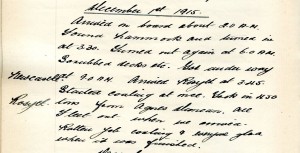 December 1st 1915.
Arrived on board about 3.0 A.M.
Found hammock and turned in
at 3.30. Turned out again at 6.0 A.M.
Scrubbed decks etc. Got under way
at 9.0 A.M. Arrived Rosyth at 3.45.
Started coaling at once. Took in 1150
Rosyth tons from Agnes Duncan. All
fleet out when we arrived.
Rotten job coaling &amp; was glad
when it was finished.